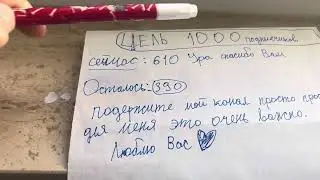 ЦЕЛЬ 1000 подписчиков
сейчас: 610 Ура спасибо Вам
Осталось: 390
подержите мой канал просто
для меня это очень важно.
Люблю Вас